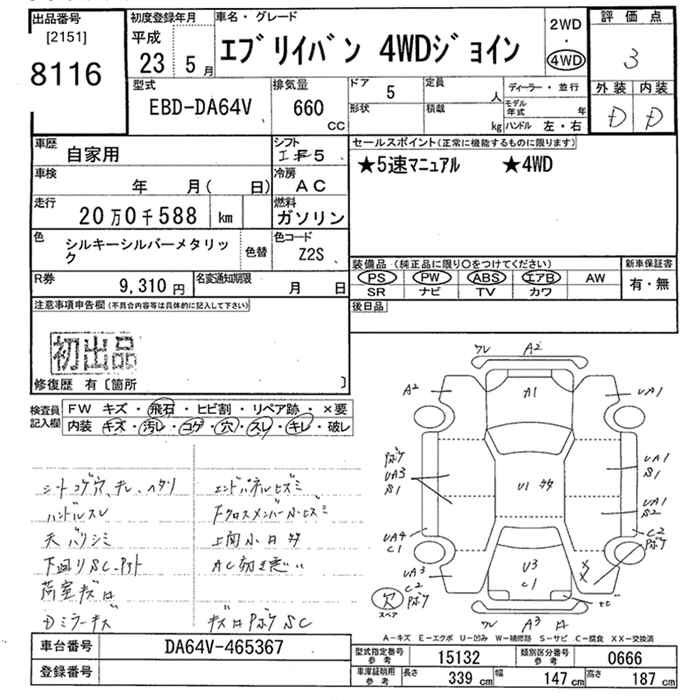 出品番号 初度登録年月 車名・グレード 2WD 評価点
[2151] 平成 ・
8116 23 5月 エブリイバン 4WDジョイン 4WD 3
型式 排気量 ドア 定員 ディーラー・並行 外装 内装
EBD-DA64V 660 CC 5 人 D D
形状 積載 kg モデル年式 年
ハンドル 左・右
車歴 自家用 シフト 5 セールスポイント(正常に機能するものに限ります)
車検 年 月( 日) 冷房 AC ★5速マニュアル ★4WD
走行 20万0千588 km 燃料 ガソリン
色 シルキーシルバーメタリック 色替 色コード Z2S
装備品(純正品に限り○をつけてください) 新車保証書
PS PW ABS エアB AW 有・無
SR ナビ TV カワ
R券 9,310円 名変通知期限 月 日
後日品
注意事項申告欄(不具合内容等は具体的に記入して下さい)
初出品
修復歴 有〔箇所 〕
検査員記入欄 FW キズ・飛石・ヒビ割・リペア跡・×要
内装 キズ・汚レ・コゲ・穴・スレ・キレ・破レ
シートコゲ穴、キレ、ヘタリ
エンドパネルヒズミ
ハンドルスレ
天バリシミ
上間小凹
下回りSC
AC効き悪い
荷室キズ凹
Dミラーキズ
キズ凹 SC
A2
A2 A1 UA1
UA3 S1 U1 UA1 S1
UA1 S2
UA4 C1 C2
UA3 U3 C1
C2
穴 スペア
A3
A-キズ E-エクボ U-凹み W-補修跡 S-サビ C-腐食 XX-交換済
車台番号 DA64V-465367
登録番号
型式指定番号 参考 15132 類別区分番号 参考 0666
車庫証明用 参考 長さ 339 cm 幅 147 cm 高さ 187 cm